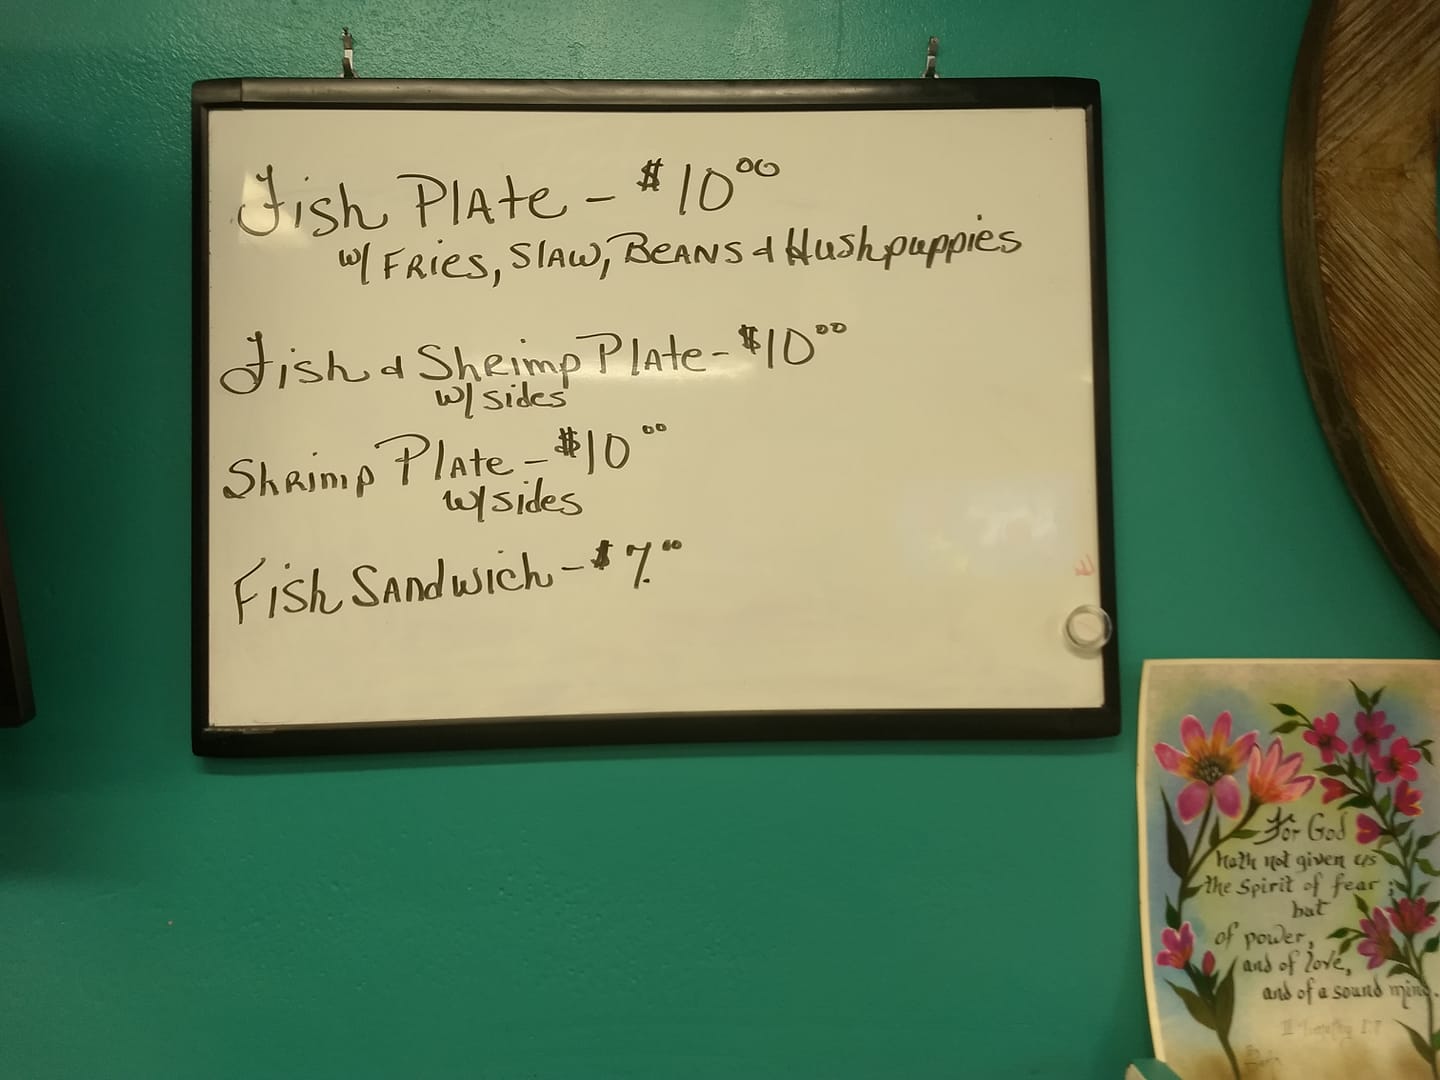 Fish Plate - $10 00
w/ Fries, Slaw, Beans & Hushpuppies
Fish & Shrimp Plate - $10 00
w/ sides
Shrimp Plate - $10 00
w/ sides
Fish Sandwich - $7. 00
For God
hath not given us
the Spirit of fear;
but
of power,
and of love,
and of a sound mind.
II Timothy 1:7